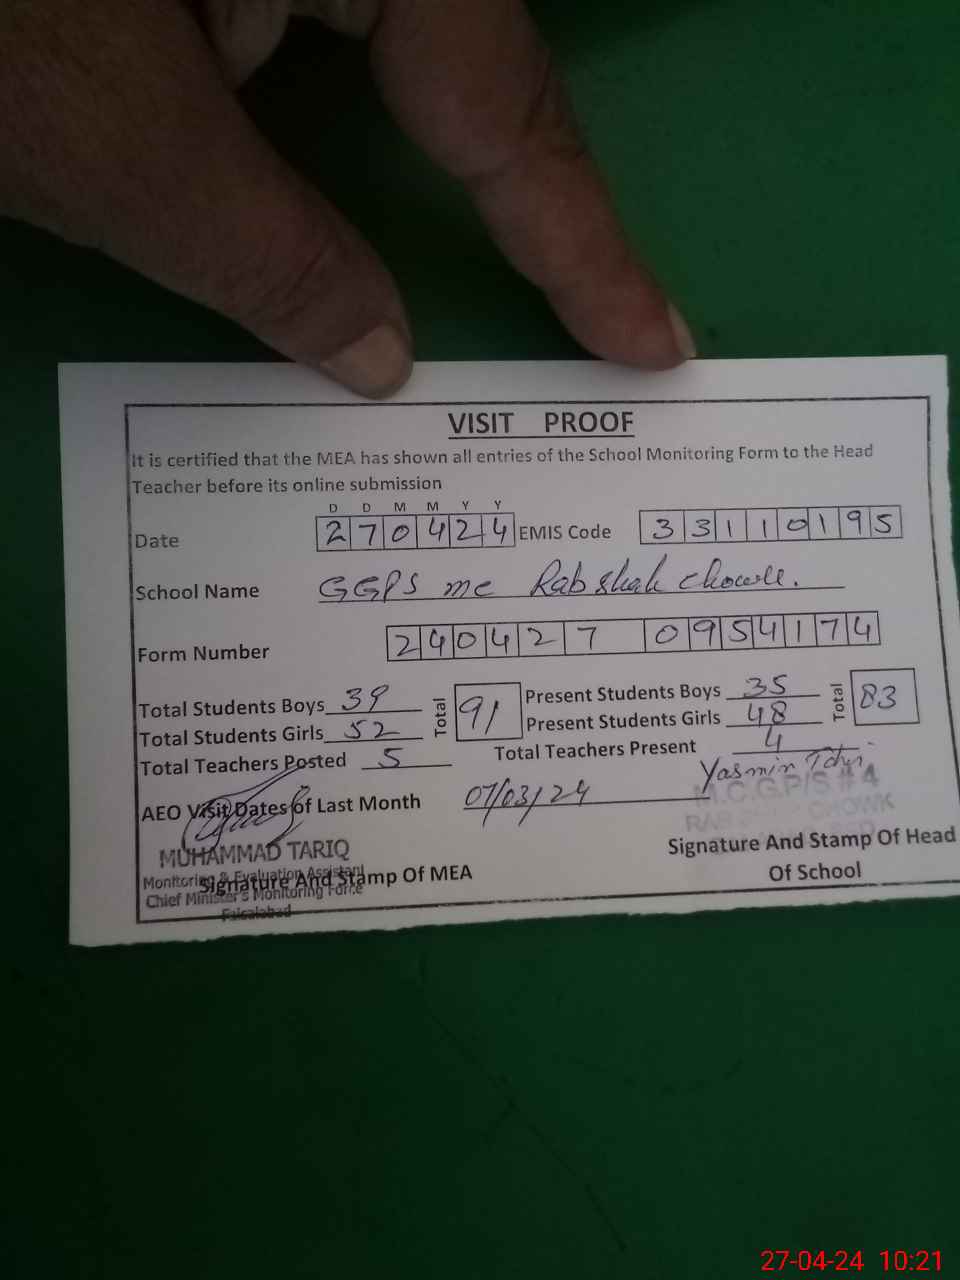 VISIT PROOF
It is certified that the MEA has shown all entries of the School Monitoring Form to the Head
Teacher before its online submission
D D M M Y Y
Date 270424 EMIS Code 33110195
School Name GGPS mc Rab shah chowk.
Form Number 240427 0954174
Total Students Boys 39 Total 91 Present Students Boys 35 Total 83
Total Students Girls 52 Present Students Girls 48
Total Teachers Posted 5 Total Teachers Present 4
Yasmin
AEO Visit Dates of Last Month 07/03/24
M.C.G.P/S # 4
CHOWK
MUHAMMAD TARIQ
Monitoring & Evaluation Assistant
Chief Minister's Monitoring Force
Faisalabad
Signature And Stamp Of MEA
Signature And Stamp Of Head
Of School
27-04-24 10:21